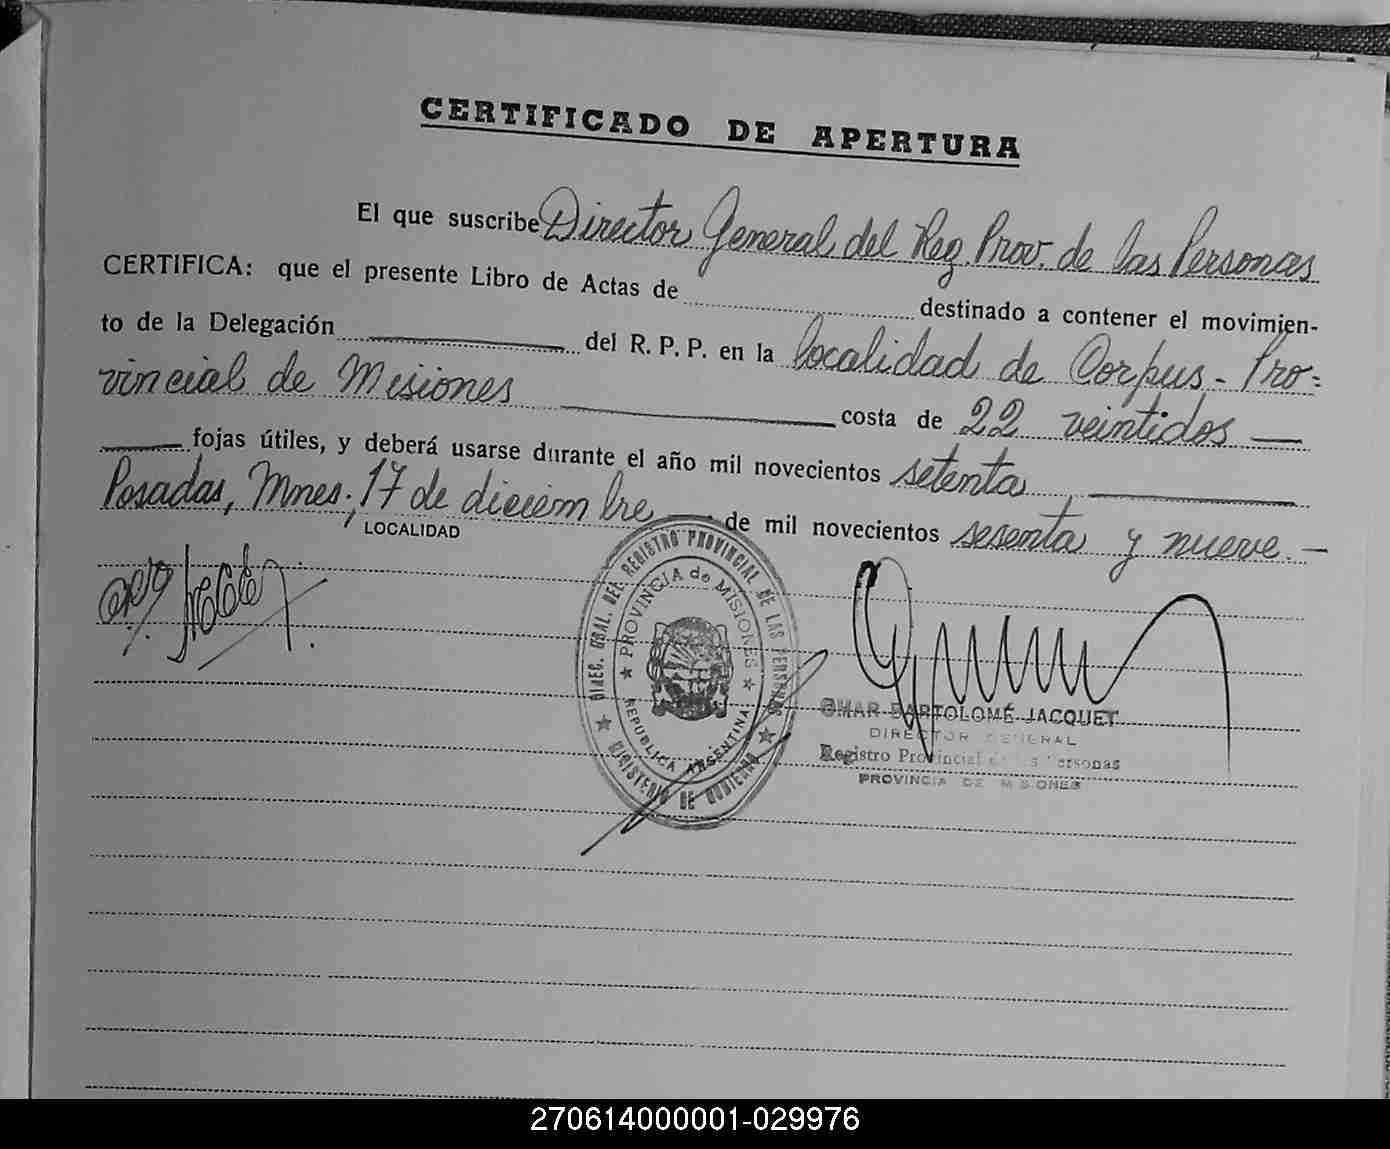 CERTIFICADO DE APERTURA
El que suscribe Director General del Reg. Prov. de las Personas
CERTIFICA: que el presente Libro de Actas de destinado a contener el movimien-
to de la Delegación del R. P. P. en la localidad de Corpus - Pro=
vincial de Misiones costa de 22 veintidos
fojas útiles, y deberá usarse durante el año mil novecientos setenta,
Posadas, Mnes. 17 de diciembre de mil novecientos sesenta y nueve.-
LOCALIDAD
DIREC. GRAL. DEL REGISTRO PROVINCIAL DE LAS PERSONAS
PROVINCIA de MISIONES
REPUBLICA ARGENTINA
MINISTERIO DE GOBIERNO
OMAR BARTOLOMÉ JACQUET
DIRECTOR GENERAL
Registro Provincial de las Personas
PROVINCIA DE MISIONES
270614000001-029976